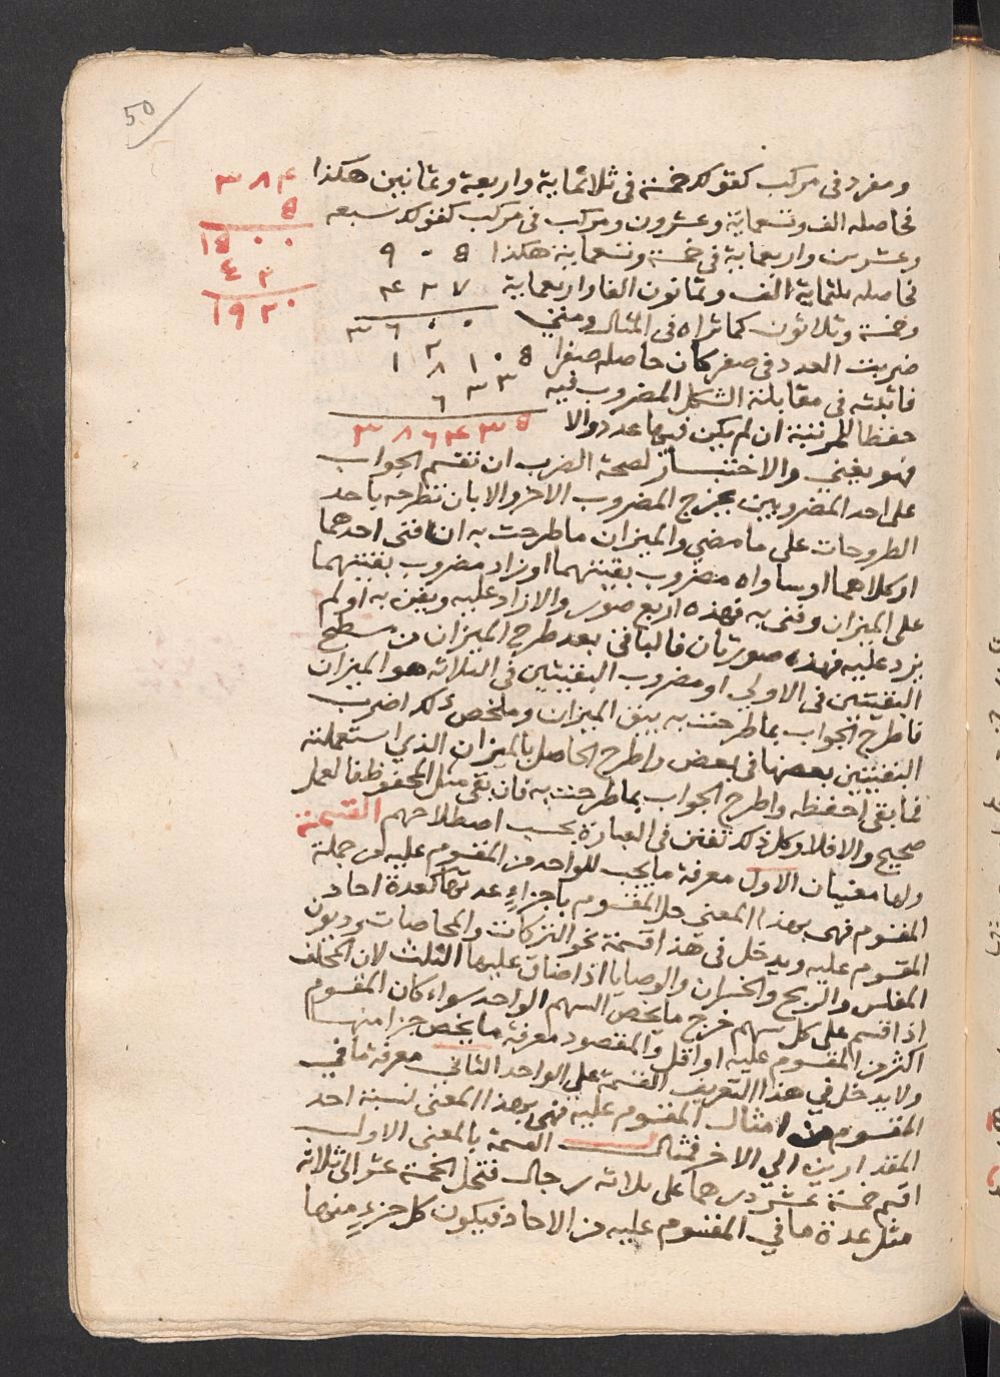 50
ومفرد فى مركب كقولك خمسة فى ثلاثماية واربعة وثمانين هكذا ٣٨۴
٥
فحاصله الف وتسعماية وعشرون ومركب فى مركب كقولك سبعه
١٥٠٠
وعشرين واربعماية فى خمسة وتسعماية هكذا ٩٠٥
٤٢
فحاصله ثلثماية الف وثمانون الفا واربعماية ۴٢٧
١٩٢٠
وخمسة وثلاثون كما تراه فى المثال ومتى ٣٦٠٠
ضربت العدد فى صفر كان حاصله صفرا
فاثبته فى مقابلة الشكل المضروب فيه
حفظا للمرتبة ان لم يكن فيها عدد والا ٣٨٦۴٣٥
فهو يغني والاختبار لصحة الضرب ان تقسم الجواب
على احد المضروبين يخرج المضروب الاخر والا بان تطرحه باحد
الطروحات على ما مضي والميزان ما طرحت به ان فنى احدهما
او كلاهما او ساواه مضروب بقيتهما او زاد مضروب بقيتهما
على الميزان وفنى به فهذه اربع صور والا زاد عليه وبقى به او لم
يزد عليه فهذه صورتان فالباقى بعد طرح الميزان من مسطح
البقيتين فى الاولي او مضروب البقيتين فى الثلاثه هو الميزان
فاطرح الجواب بما طرحت به يبق الميزان وملخص ذلك اضرب
البقيتين بعضها فى بعض واطرح الحاصل بالميزان الذي استعملته
فما بقى احفظه واطرح الجواب بما طرحت به فان بقى مثل المحفوظ فالعمل
صحيح والا فلا وكل ذلك تفنن فى العبارة بحسب اصطلاحهم القسمة
ولها معنيان الاول معرفة ما يجب للواحد من المقسوم عليه من جملة
المقسوم فهى بهذا المعنى حل المقسوم باجزاءٍ عدتها كعدة احاد
المقسوم عليه ويدخل فى هذا قسمة نحو التركات والمحاصات وديون
المفلس والربح والخسران والوصايا اذا ضاق عليها الثلث لان المخلف
اذا قسم على كل سهم خرج ما يخص السهم الواحد سواء كان المقسوم
اكثر من المقسوم عليه او اقل والمقصود معرفة ما يخص جزا منها
ولا يدخل في هذا التعريف القسمة علي الواحد الثاني معرفة ما في
المقسوم من امثال المقسوم عليه فهى بهذا المعنى نسبة احد
المقدارين الي الاخر فمثال القسمة بالمعنى الاول
اقسم خمسة عشر درهما على ثلاثه رجال فتحل الخمسة عشر الى ثلاثة
مثل عدة ما في المقسوم عليه من الاحاد فيكون كل جزءٍ منها